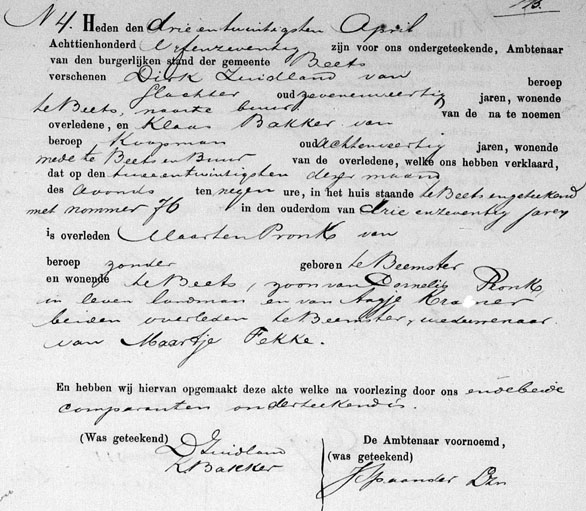 N 4. Heden den drie en twintigsten April
Achttienhonderd Vyfenzeventig zijn voor ons ondergeteekende, Ambtenaar
van den burgerlijken stand der gemeente Beets
verschenen Dirk Zuidland van beroep
Slachter oud zevenenveertig jaren, wonende
te Beets, naaste buur van de na te noemen
overledene, en Klaas Bakker van
beroep Koopman oud achtenveertig jaren, wonende
mede te Beets en Buur van de overledene, welke ons hebben verklaard,
dat op den twee entwintigsten dezer maand
des avonds ten negen ure, in het huis staande te Beets en geteekend
met nommer 76 in den ouderdom van drie enzeventig jaren
is overleden Maarten Pronk van
beroep zonder geboren te Beemster
en wonende te Beets, zoon van Cornelis Pronk,
in leven landman en van Aagje Kramer
beiden overleden te Beemster, weduwenaar
van Maartje Fekke.
En hebben wij hiervan opgemaakt deze akte welke na voorlezing door ons en de beide
comparanten onderteekend is.
(Was geteekend) De Ambtenaar voornoemd,
D Zuidland (was geteekend)
K Bakker J Spaander Dzn